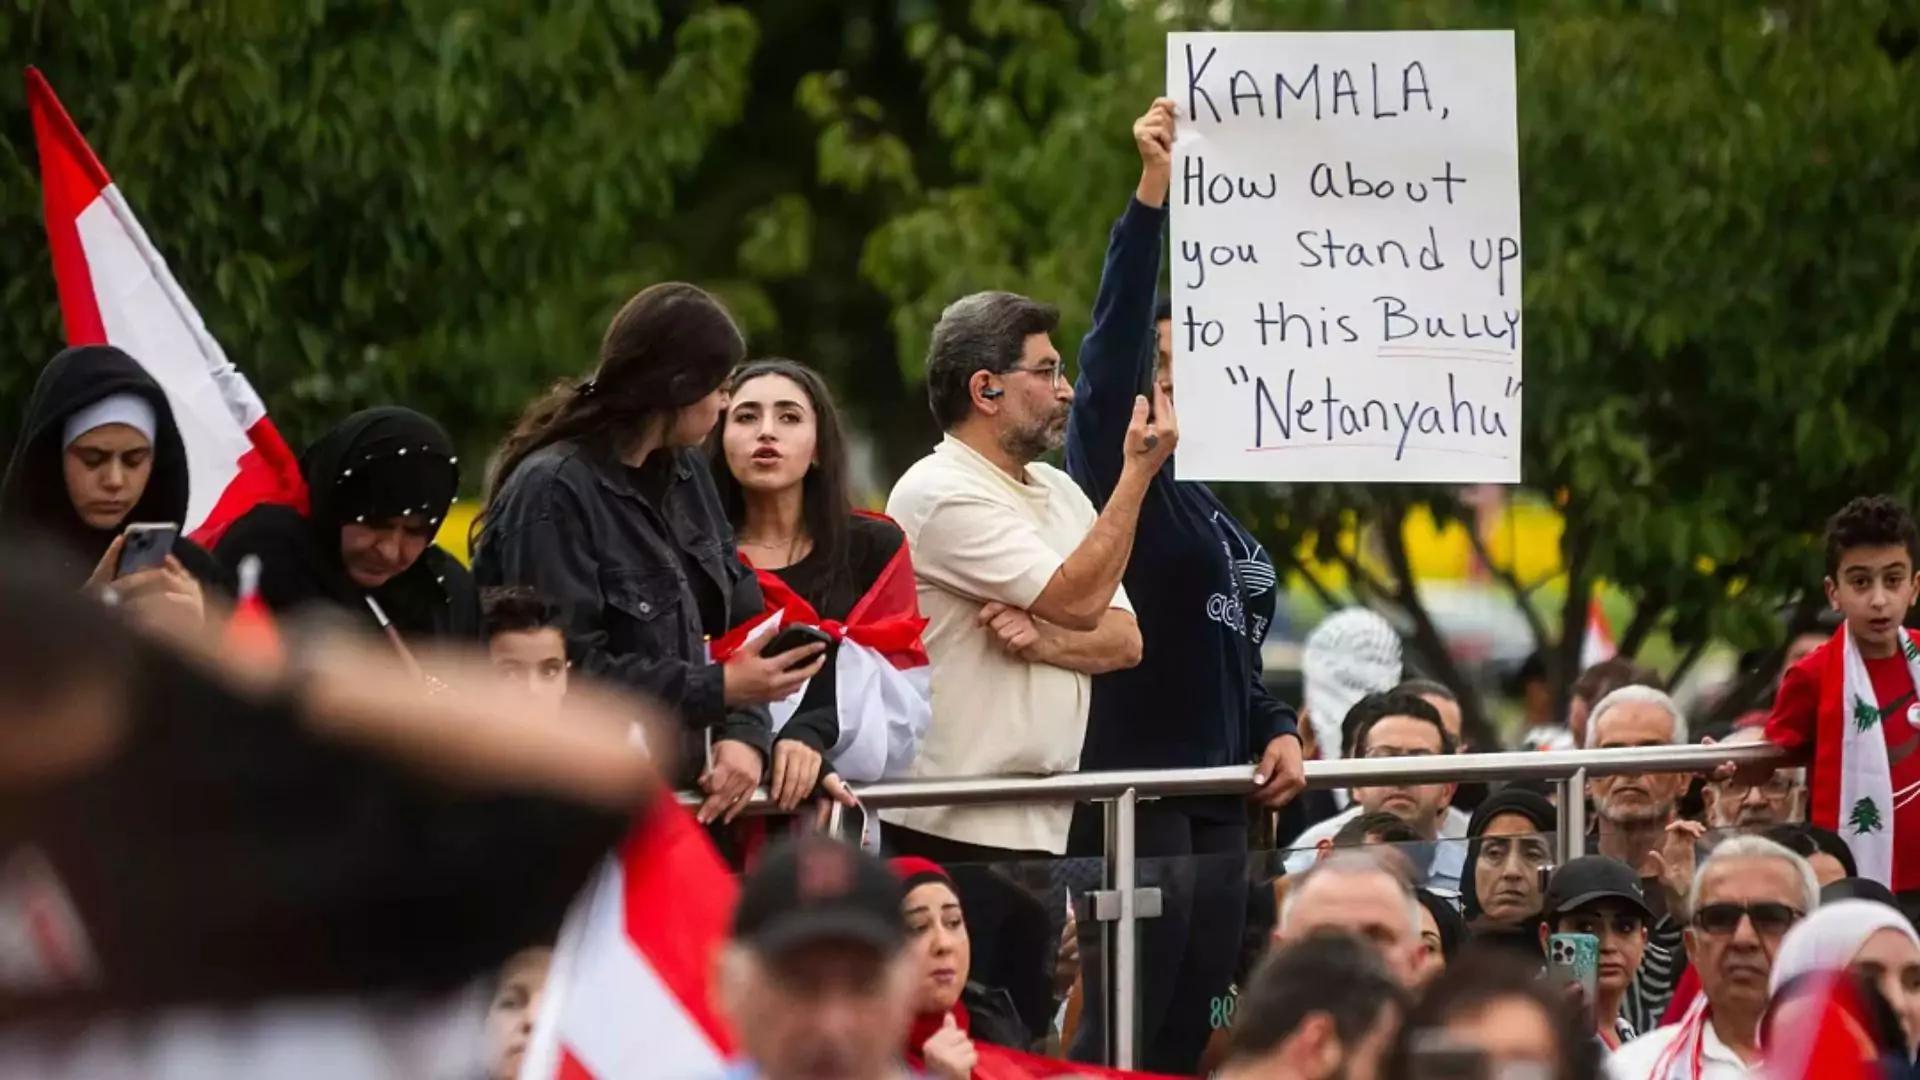 KAMALA,
How about
you stand up
to this BULLY
"Netanyahu"